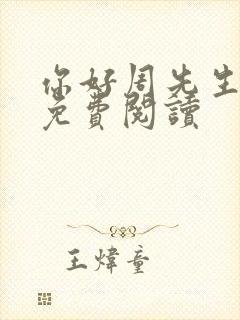 你好周先生
免費閱讀
王煒童